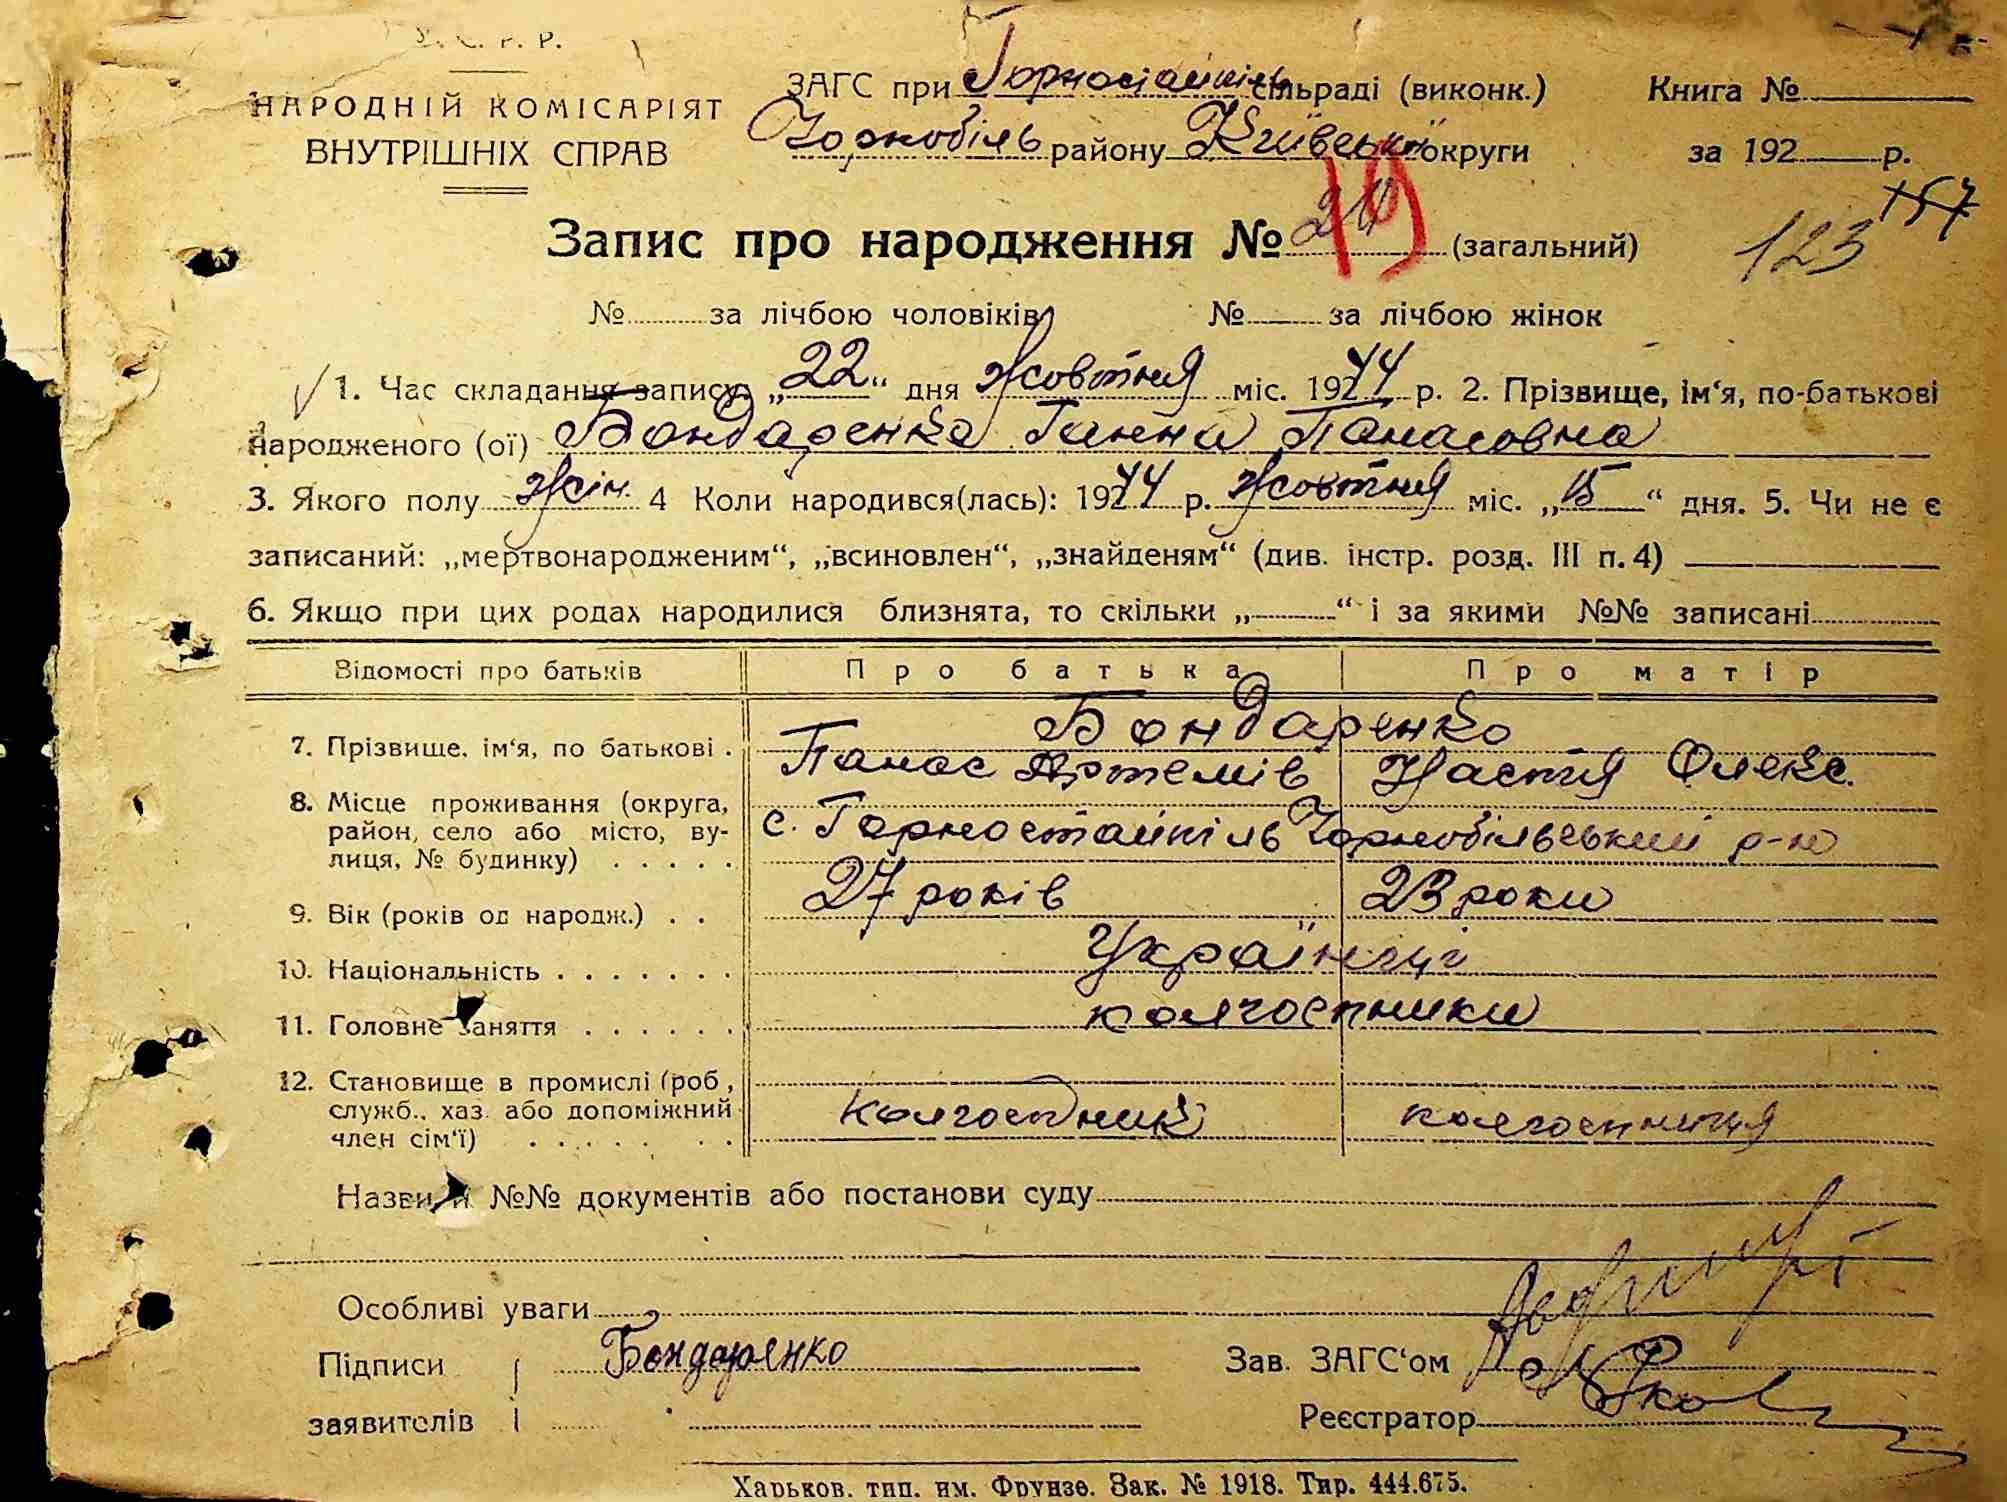 У. С. Р. Р.
НАРОДНІЙ КОМІСАРІЯТ
ВНУТРІШНІХ СПРАВ
ЗАГС при Горностайпіль сільраді (виконк.)
Чорнобіль району Київської округи
Книга №
за 192 р.
157
123
Запис про народження № 24 19 (загальний)
№ за лічбою чоловіків № за лічбою жінок
1. Час складання запису „22“ дня Жовтня міс. 19244 р. 2. Прізвище, ім‘я, по-батькові
народженого (ої) Бондаренко Ганна Панасовна
3. Якого полу жін. 4 Коли народився(лась): 19244 р. Жовтня міс. „15“ дня. 5. Чи не є
записаний: „мертвонародженим“, „всиновлен“, „знайденям“ (див. інстр. розд. III п. 4)
6. Якщо при цих родах народилися близнята, то скільки „ “ і за якими №№ записані
Відомості про батьків Про батька Про матір
7. Прізвище, ім‘я, по батькові . Бондаренко
Панас Артемів Настя Олекс.
8. Місце проживання (округа,
район, село або місто, ву-
лиця, № будинку) . . . . .
с. Горностайпіль Чорнобільський р-н
9. Вік (років од народж.) . . 27 років 23 роки
10. Національність . . . . . . . Українці
11. Головне заняття . . . . . . колгоспники
12. Становище в промислі (роб.,
служб., хаз. або допоміжний
член сім‘ї) . . . . . . .
колгоспник колгоспниця
Назви й №№ документів або постанови суду
Особливі уваги
Підписи Бондаренко Зав. ЗАГС‘ом
заявителів Реєстратор
Харьков. тип. им. Фрунзе. Зак. № 1918. Тир. 444.675.